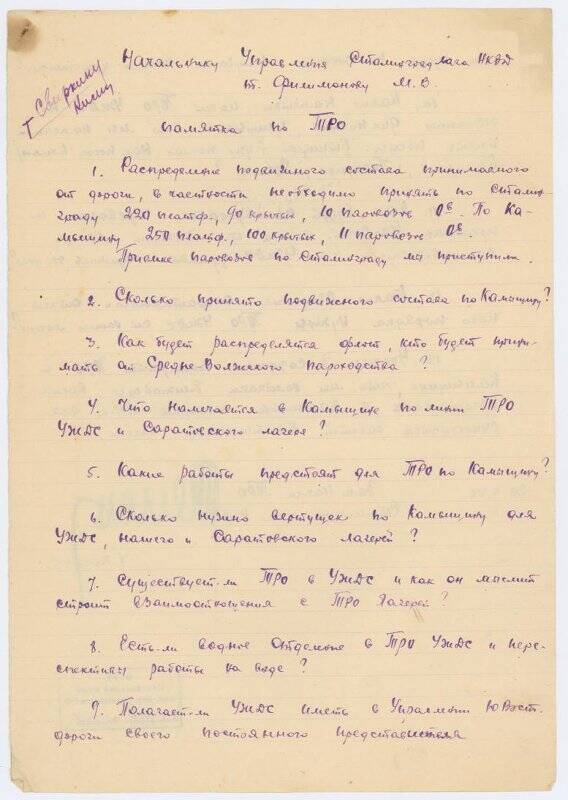 т. Сверкину
Начальнику Управления Сталинградлага НКВД
т. Филимонову М. В.
памятка по ТРО
1. Распределение подвижного состава принимаемого
от дороги, в частности необходимо принять по Сталин-
граду 220 платф., 90 крытых, 10 паровозов Ов. По Ка-
мышину 250 платф., 100 крытых, 11 паровозов Ов.
Приемке паровозов по Сталинграду мы приступили.
2. Сколько принято подвижного состава по Камышину?
3. Как будет распределятся флот, кто будет прини-
мать от Средне-Волжского пароходства?
4. Что намечается в Камышине по линии ТРО
УЖДС и Саратовского лагеря?
5. Какие работы предстоят для ТРО по Камышину?
6. Сколько нужно вертушек по Камышину для
УЖДС, нашего и Саратовского лагерей?
7. Существует-ли ТРО в УЖДС и как он мыслит
строит взаимоотношения с ТРО Лагерей?
8. Есть-ли водное отделение в ТРО УЖДС и перс-
пективы работы на воде?
9. Полагает-ли УЖДС иметь в Управлении Ю Вост.
дороги своего постоянного представителя